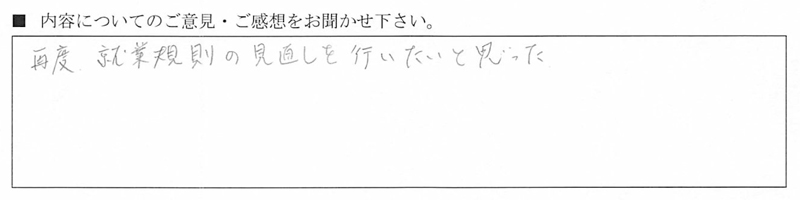 ■ 内容についてのご意見・ご感想をお聞かせ下さい。
再度、就業規則の見直しを行いたいと思った